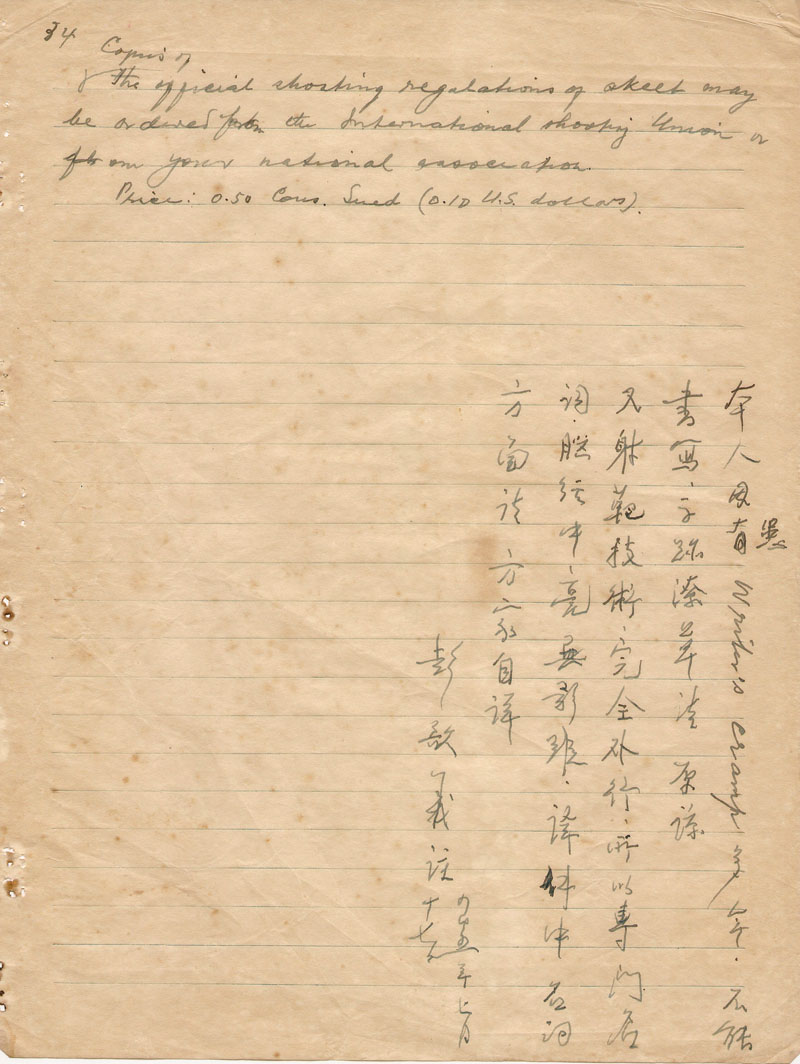 34
Copies of
The official shooting regulations of skeet may
be ordered from the International Shooting Union or
from your national association.
Price: 0.50 Cous. Sued (0.10 U.S. dollars).
本人因有患 Writer's cramp 多年.不能
書寫.字跡潦草 請 原諒
又射靶技術.完全外行.所以專門名
詞.腦經中.毫無影踪.譯件中名詞
方面請 方家自譯
彭啟義 註
四十五年七月十七日